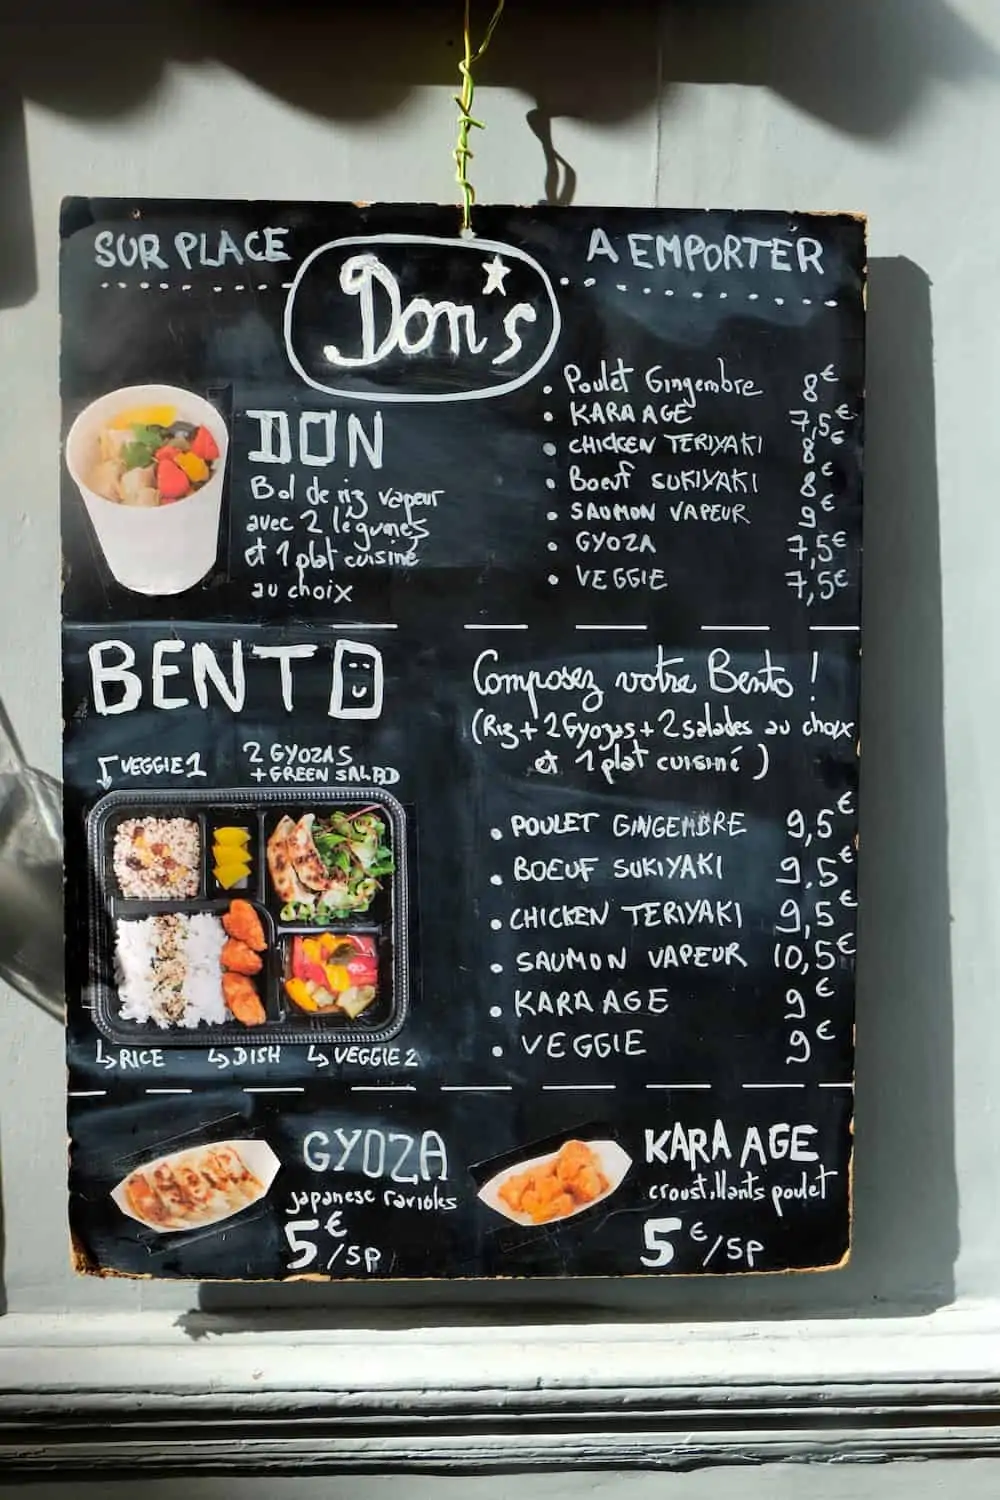 SUR PLACE
Don's
A EMPORTER
DON
Bol de riz vapeur
avec 2 légumes
et 1 plat cuisiné
au choix
• Poulet Gingembre 8€
• KARA AGE 7,5€
• CHICKEN TERIYAKI 8€
• Boeuf SUKIYAKI 8€
• SAUMON VAPEUR 9€
• GYOZA 7,5€
• VEGGIE 7,5€
BENTO
VEGGIE 1
2 GYOZAS
+ GREEN SALAD
RICE
DISH
VEGGIE 2
Composez votre Bento !
(Riz + 2 Gyozas + 2 salades au choix
et 1 plat cuisiné )
• POULET GINGEMBRE 9,5€
• BOEUF SUKIYAKI 9,5€
• CHICKEN TERIYAKI 9,5€
• SAUMON VAPEUR 10,5€
• KARA AGE 9€
• VEGGIE 9€
GYOZA
japanese ravioles
5€/5p
KARA AGE
croustillants poulet
5€/5p